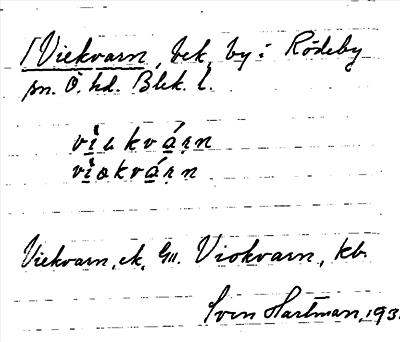 Viekvarn, bek. by i Rödeby
sn. Ö. hd. Blek. l.
vìəkvárn
vìəkvárn
Viekvarn, ek. Gn. Viokvarn, kb.
Sven Hartman, 193